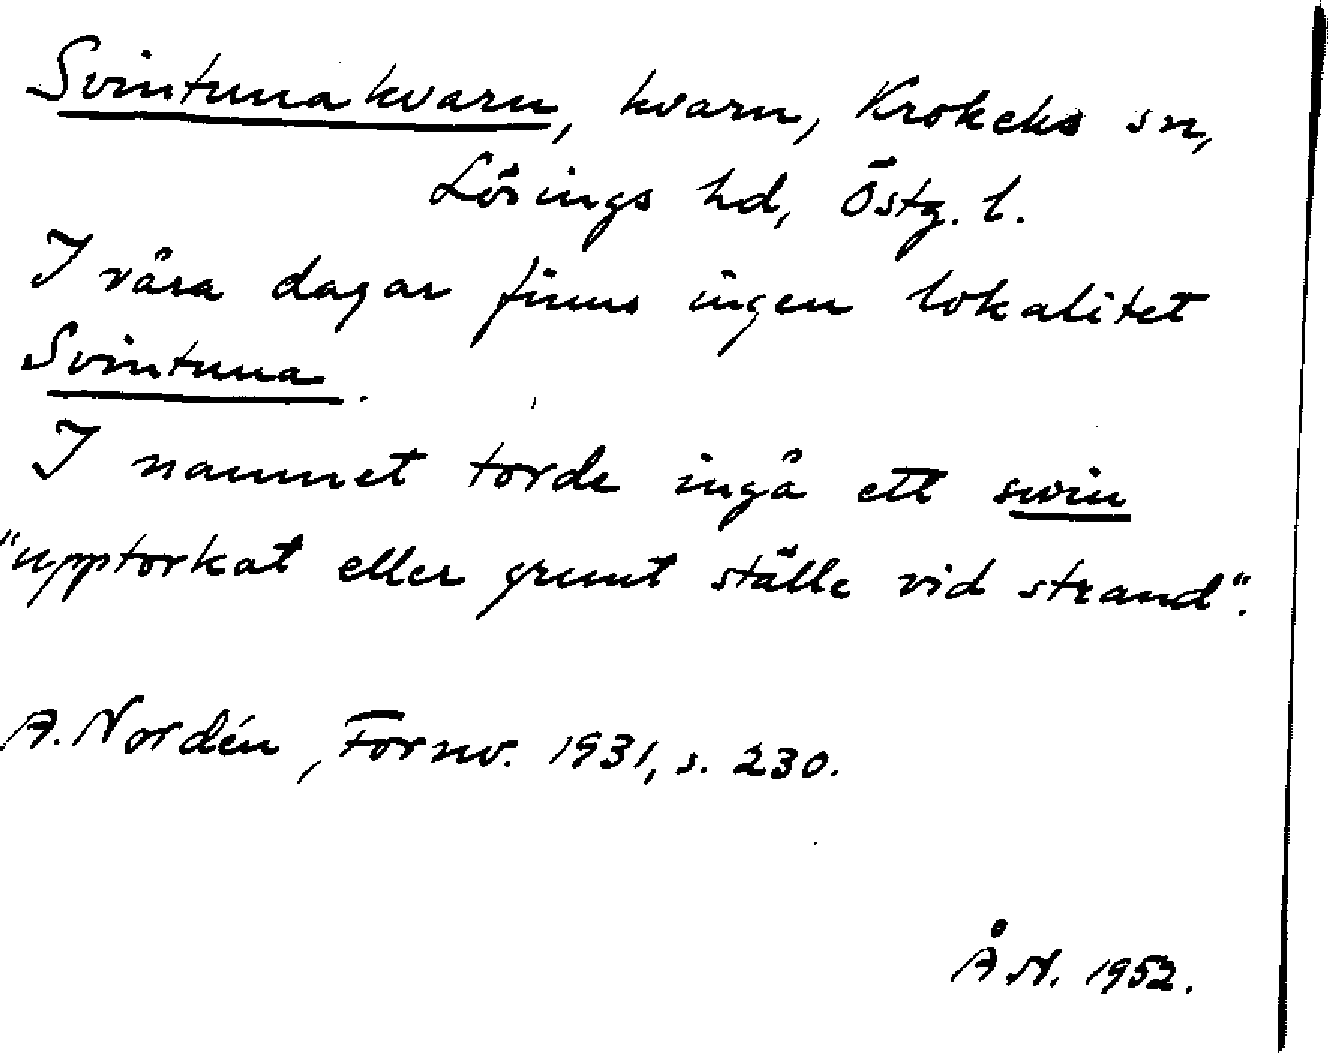 Svintuna kvarn, kvarn, Krokeks sn,
Lösings hd, Östg. l.
I våra dagar finns ingen lokalitet
Svintuna.
I namnet torde ingå ett svin
"upptorkat eller grunt ställe vid strand".
A. Nordén, Fornv. 1931, s. 230.
Å N. 1952.